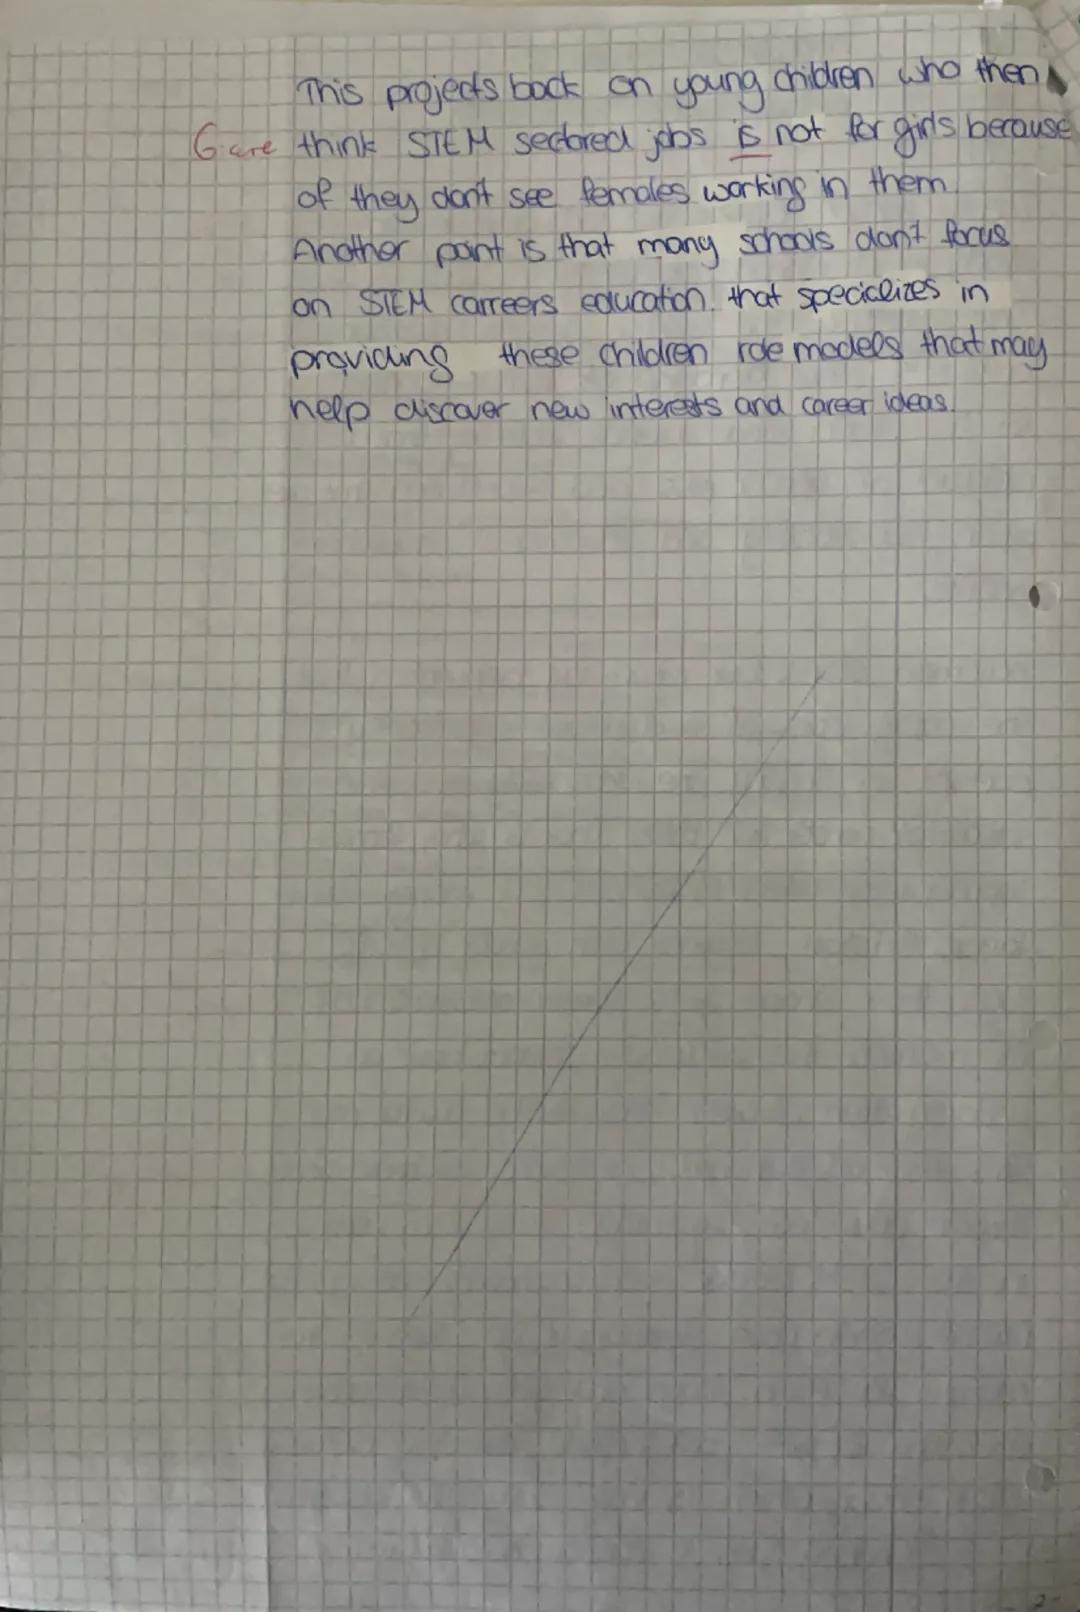 This projects back on young children who then
G are think STEM sectored jobs is not for girls because
of they don't see females working in them.
Another point is that many schools don't focus
on STEM carreers education. that specializes in
providing these children role models that may
help discover new interests and career ideas.